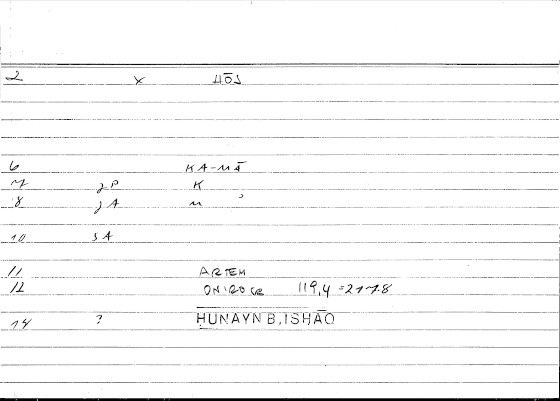 2 x HŌJ
6 KA-MĀ
7 gP K
8 gA M
10 SA
11 ARTEM
12 ONIROCR 119,4 = 217.8
14 ? ḤUNAYN B. ISḤĀQ